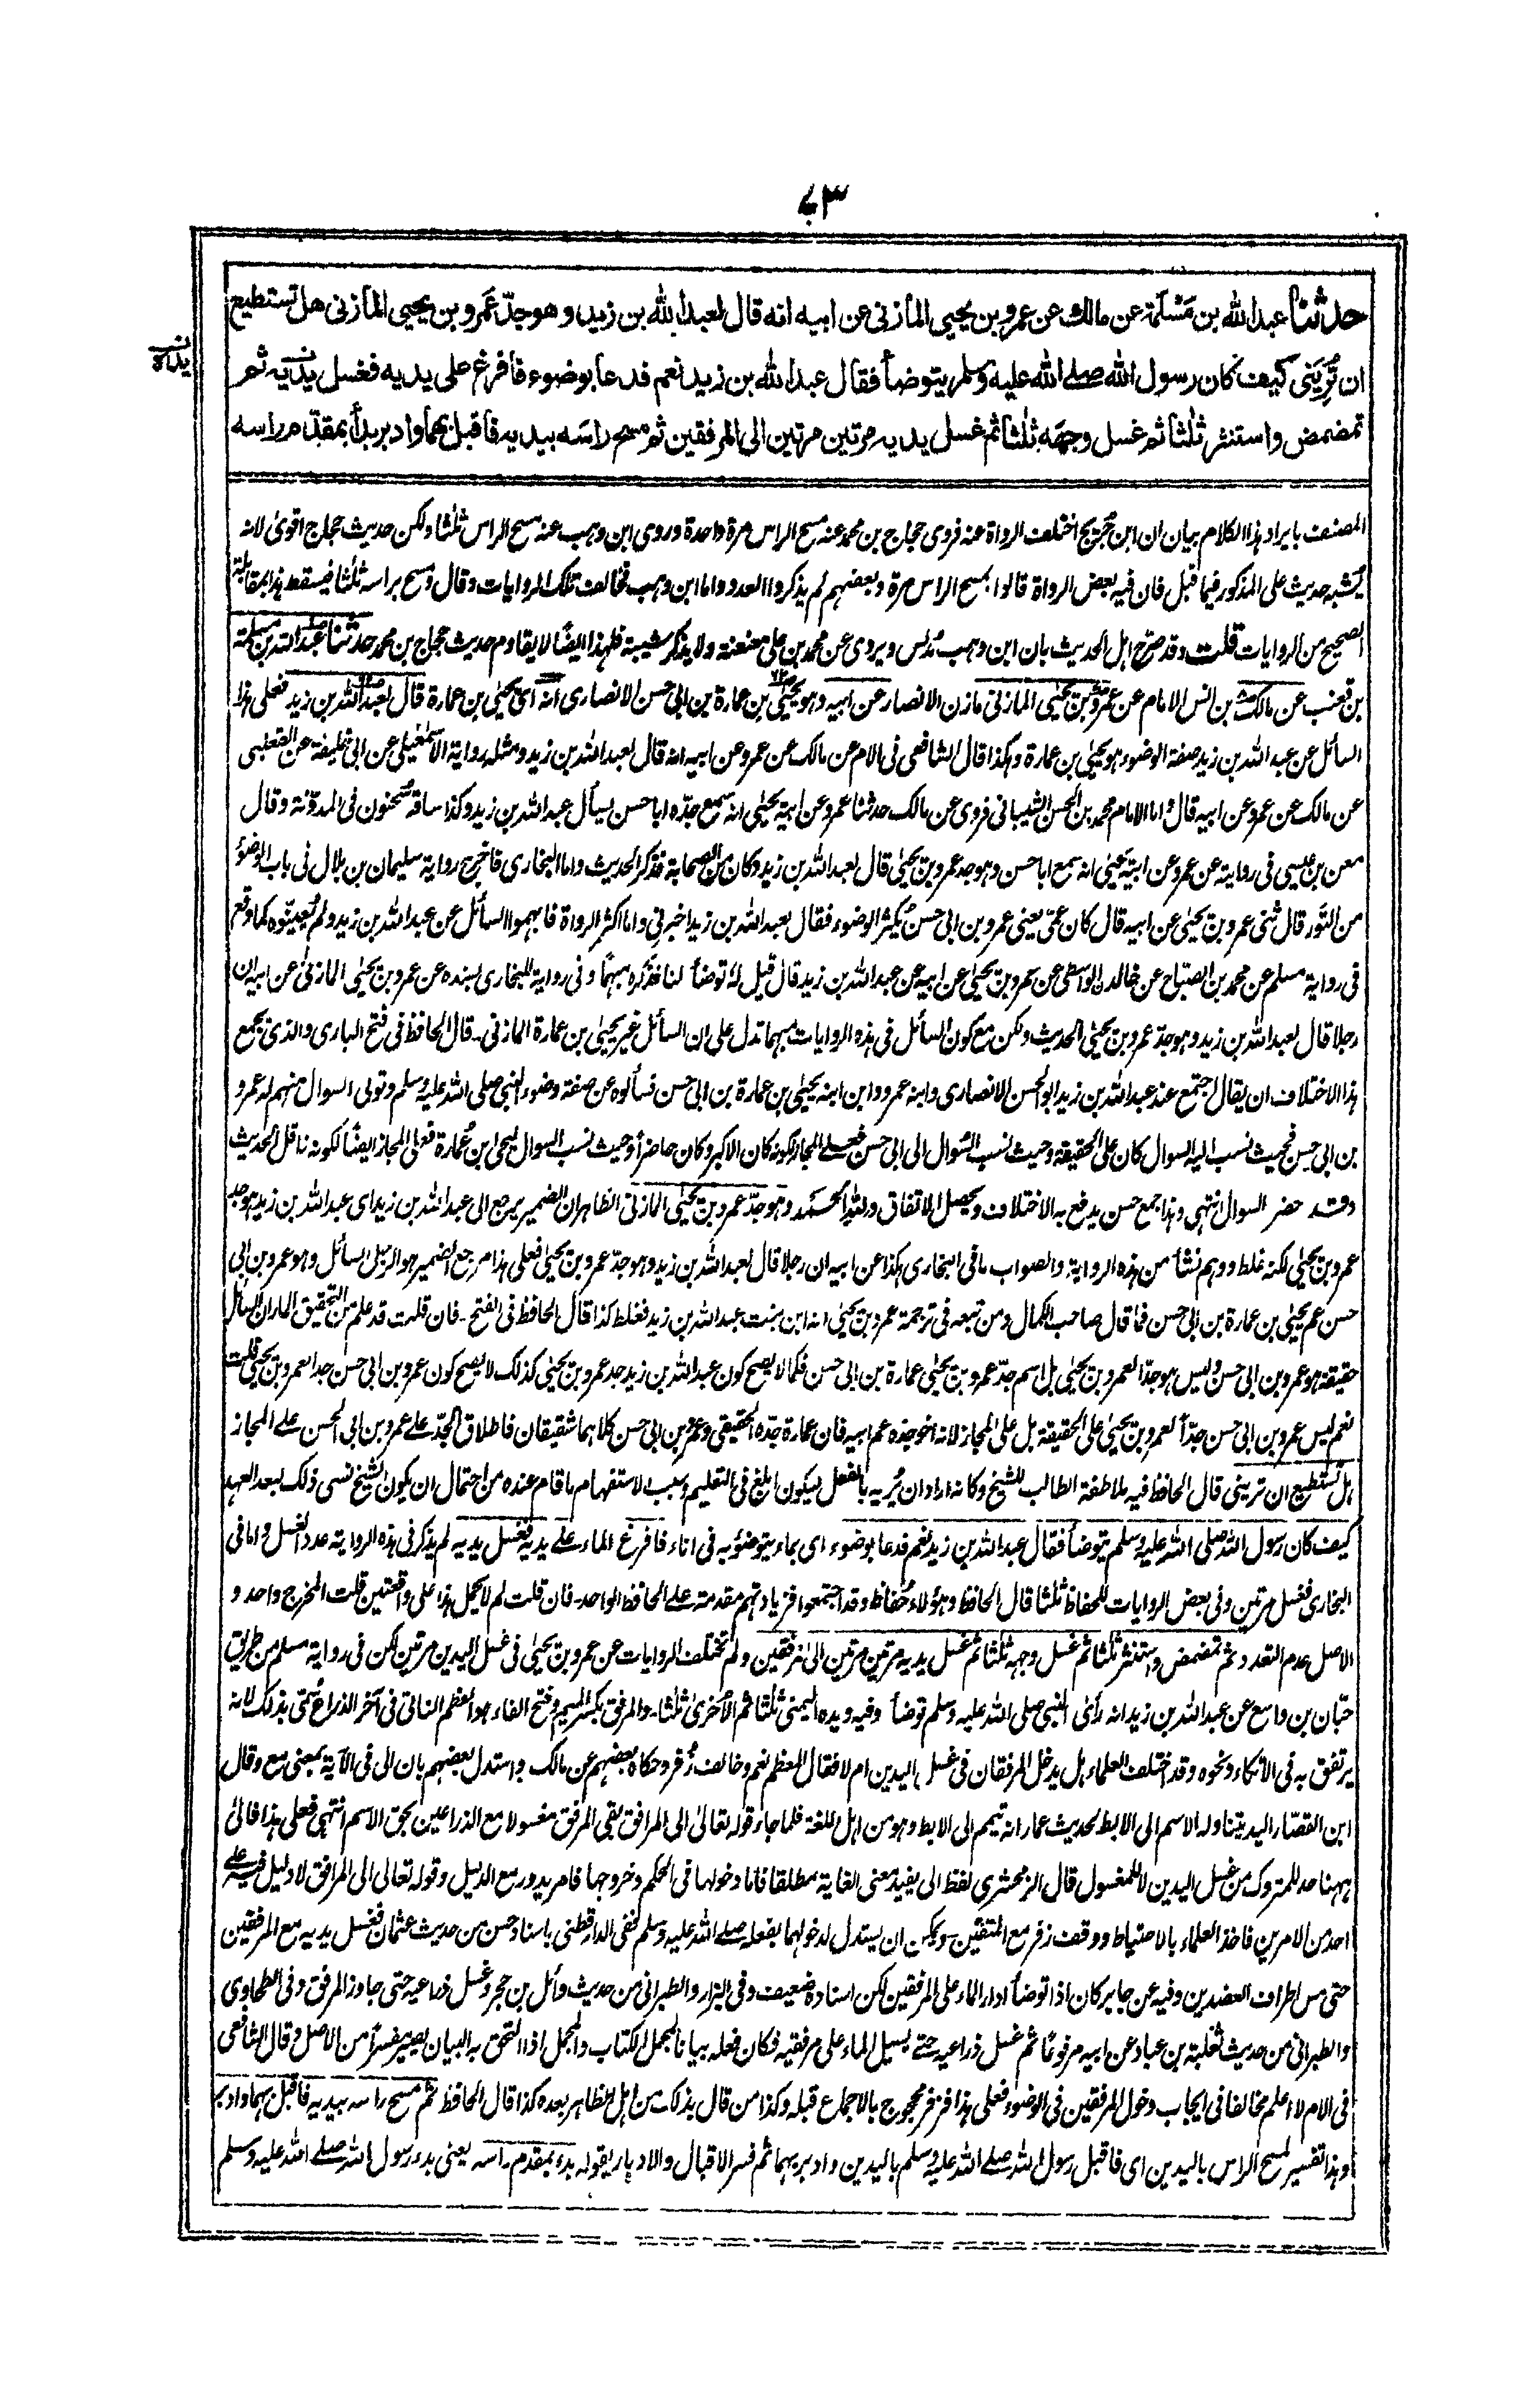 ٧٣
حدثنا عبد الله بن مَسْلَمة عن مالك عن عمرو بن يحيى المازنى عن ابيه انه قال لعبد الله بن زيد وهو جدّ عَمرو بن يحيى المازنى هل تستطيع
ان تُرِيَنى كيف كان رسول الله صلى الله عليه وسلم يتوضأ فقال عبد الله بن زيد نعم فدعا بوضوء فأفرغ على يديه فغسل يديه ثم
يداه
تمضمض واستنثر ثلٰثا ثم غسل وجهَه ثلٰثا ثم غسل يديه مرتين مرتين الى المرفقين ثم مسح راسَه بيديه فاقبل بهما وادبر بدأ بمقدّم راسه
المصنف بايراد هذا الكلام بيان ان ابن جُرَيج اختلف الرواة عنه فروى حجاج بن محمد عنه مسح الراس مرة واحدة وروى ابن وهب عنه مسح الراس ثلٰثا ولكن حديث حجاج اقوىٰ لانه
يُشبه حديث على المذكور فيما قبل فان فيه بعض الرواة قالوا بمسح الراس مرة وبعضهم لم يذكروا العدد واما ابن وهب فخالف تلك الروايات وقال ومسح براسه ثلٰثا فيسقط هذا بمقابلة
الصحيح من الروايات قلت وقد صرّح اهل الحديث بان ابن وهب مُدلس ويروى عن محمد بن على معنعنة ولا يذكر شيبة فلهذا ايضًا لا يقاوم حديث حجاج بن محمد حدثنا عبد الله بن مسلمة
بن قعنب عن مالك بن انس الامام عن عمرو بن يحيى المازنى مازن الانصار عن ابيه وهو يحيٰى بن عمارة بن ابى حسن الانصارى انه اى يحيى بن عمارة قال لعبد الله بن زيد فعلى هذا
السائل عن عبد الله بن زيد صفة الوضوء هو يحيىٰ بن عمارة وهكذا قال الشافعى فى الام عن مالك عن عمرو عن ابيه انه قال لعبد الله بن زيد ومثله رواية الاسمٰعيلى عن ابى خليفة عن القعنبى
عن مالك عن عمرو عن ابيه قال واما الامام محمد بن الحسن الشيبانى فروى عن مالك حدثنا عمرو عن ابيه يحيىٰ انه سمع جدّه ابا حسن يسأل عبد الله بن زيد وكذا ساقه سُحنون فى المدوّنة وقال
معن بن عيسى فى روايته عن عمرو عن ابيه يحيىٰ انه سمع ابا حسن وهو جد عمرو بن يحيىٰ قال لعبد الله بن زيد وكان من الصحابة فذكر الحديث واما البخارى فاخرج رواية سليمان بن بلال فى باب الوضوء
من التَور قال ثنى عمرو بن يحيىٰ عن ابيه قال كان عمّى يعنى عمرو بن ابى حسن يُكثر الوضوء فقال لعبد الله بن زيد اخبرنى واما اكثر الرواة فابهموا السائل عن عبد الله بن زيد ولم يُعيّنوه كما وقع
فى رواية مسلم عن محمد بن الصبّاح عن خالد الواسطى عن عمرو بن يحيىٰ عن ابيه عن عبد الله بن زيد قال قيل له توضأ لنا فذكره مبهمًا وفى رواية للبخارى بسنده عن عمرو بن يحيىٰ المازنى عن ابيه ان
رجلا قال لعبد الله بن زيد وهو جدّ عمرو بن يحيىٰ الحديث ولكن مع كون السائل فى هذه الروايات مبهما تدل على ان السائل غير يحيىٰ بن عمارة المازنى۔ قال الحافظ فى فتح البارى والذى يجمع
هذا الاختلاف ان يقال اجتمع عند عبد الله بن زيد ابو الحسن الانصارى وابنه عمرو وابن ابنه يحيىٰ بن عمارة بن ابى حسن فسألوه عن صفة وضوء النبى صلى الله عليه وسلم وتولى السوال منهم له عمرو
بن ابى حسن فحيث نسب اليه السوال كان على الحقيقة وحيث نسب السُوال الى ابى حسن فعلى المجاز لكونه كان الاكبر وكان حاضراً وحيث نسب السوال ليحيىٰ بن عُمارة فعلى المجاز ايضًا لكونه ناقل الحديث
وقد حضر السوال انتهى وهذا جمع حسن يدفع به الاختلاف ويحصل الاتفاق ولله الحمد وهو جدّ عمرو بن يحيىٰ المازنى الظاهر ان الضمير يرجع الى عبد الله بن زيد اى عبد الله بن زيد هو جد
عمرو بن يحيىٰ لكنه غلط ووهم نشأ من هذه الرواية والصواب ما فى البخارى هكذا عن ابيه ان رجلا قال لعبد الله بن زيد وهو جدّ عمرو بن يحيىٰ فعلى هذا مرجع الضمير هو الرجل السائل وهو عمرو بن ابى
حسن عم يحيىٰ بن عمارة بن ابى حسن فما قال صاحب الكمال ومن تبعه فى ترجمة عمرو بن يحيىٰ انه ابن بنت عبد الله بن زيد فغلط كذا قال الحافظ فى الفتح۔ فان قلت قد علم من التحقيق المار ان السائل
حقيقة هو عمرو بن ابى حسن وليس هو جدّا لعمرو بن يحيىٰ بل اسم جدّ عمرو بن يحيىٰ عمارة بن ابى حسن فكما لا يصح كون عبد الله بن زيد جد عمرو بن يحيىٰ كذلك لا يصح كون عمرو بن ابى حسن جدا لعمرو بن يحيىٰ قلت
نعم ليس عمرو بن ابى حسن جدّاً لعمرو بن يحيىٰ على الحقيقة بل على المجاز لانه اخو جده عم ابيه فان عمارة جدّه الحقيقى وعمرو بن ابى حسن كلاهما شقيقان فاطلاق الجدّ على عمرو بن ابى الحسن على المجاز
هل تستطيع ان ترينى قال الحافظ فيه ملاطفة الطالب للشيخ وكانه اراد ان يُريه بالفعل ليكون ابلغ فى التعليم وسبب الاستفهام ما قام عنده من احتمال ان يكون الشيخ نسى ذلك لبعد العهد
كيف كان رسول الله صلى الله عليه وسلم يتوضأ فقال عبد الله بن زيد نعم فدعا بوضوء اى بماء يتوضؤ به فى اناء فافرغ الماء على يديه فغسل يديه لم يذكر فى هذه الرواية عدد الغسل واما فى
البخارى فغسل مرتين وفى بعض الروايات للحفاظ ثلٰثا قال الحافظ وهؤلاء حُفاظ وقد اجتمعوا فزيادتهم مقدمة على الحافظ الواحد۔ فان قلت لم لا يحمل هذا على وقعتين قلت المخرج واحد و
الاصل عدم التعدد ثم تمضمض واستنثر ثلٰثا ثم غسل وجهه ثلٰثا ثم غسل يديه مرتين مرتين الى المرفقين ولم تختلف الروايات عن عمرو بن يحيىٰ فى غسل اليدين مرتين لكن فى رواية مسلم من طريق
حبّان بن واسع عن عبد الله بن زيد انه رأى النبى صلى الله عليه وسلم توضأ وفيه ويده اليمنى ثلٰثا ثم الاُخرىٰ ثلٰثا۔ والمرفق بكسر الميم وفتح الفاء هو العظم الناتى فى آخر الذراع سُمّى بذلك لانه
يرتفق به فى الاتكاء ونحوه وقد اختلف العلماء هل يدخل المرفقان فى غسل اليدين ام لا فقال المعظم نعم وخالف زُفر وحكاه بعضهم عن مالك واستدل بعضهم بان الى فى الآية بمعنى مع وقال
ابن القصّار اليد يتناوله الاسم الى الابط لحديث عمار انه تيمم الى الابط وهو من اهل اللغة فلما جاء قوله تعالىٰ الى المرافق بقى المرفق مغسولا مع الذراعين بحق الاسم انتهى فعلى هذا فالىٰ
ههنا حد للمتروك من غسل اليدين لا للمغسول قال الزمحشرى لفظ الى يفيد معنى الغاية مطلقا فاما دخولها فى الحكم وخروجها فامر يدور مع الدليل وقوله تعالى الى المرافق لا دليل فيه على
احد من الامرين فاخذ العلماء بالاحتياط ووقف زفر مع المتيقن ويمكن ان يستدل لدخولهما بفعله صلى الله عليه وسلم ففى الدارقطنى باسناد حسن من حديث عثمان فغسل يديه مع المرفقين
حتى مس اطراف العضدين وفيه عن جابر كان اذا توضأ ادار الماء على المرفقين لكن اسناده ضعيف وفى البزار والطبرانى من حديث وائل بن حجر وغسل ذراعيه حتى جاوز المرفق وفى الطحاوى
والطبرانى من حديث ثعلبة بن عباد عن ابيه مرفوعًا ثم غسل ذراعيه حتى يسيل الماء على مرفقيه فكان فعله بيانا لمجمل الكتاب والمجمل اذا التحق به البيان يصير مفسراً من الاصل وقال الشافعى
فى الام لا اعلم مخالفا فى ايجاب دخول المرفقين فى الوضوء فعلى هذا فزفر محجوج بالاجماع قبله وكذا من قال بذلك من اهل الظاهر بعده كذا قال الحافظ ثم مسح راسه بيديه فاقبل بهما وادبر
وهذا تفسير لمسح الراس باليدين اى فاقبل رسول الله صلى الله عليه وسلم باليدين وادبر بهما ثم فسر الاقبال والادبار بقوله بدء بمقدم راسه يعنى بدء رسول الله صلى الله عليه وسلم